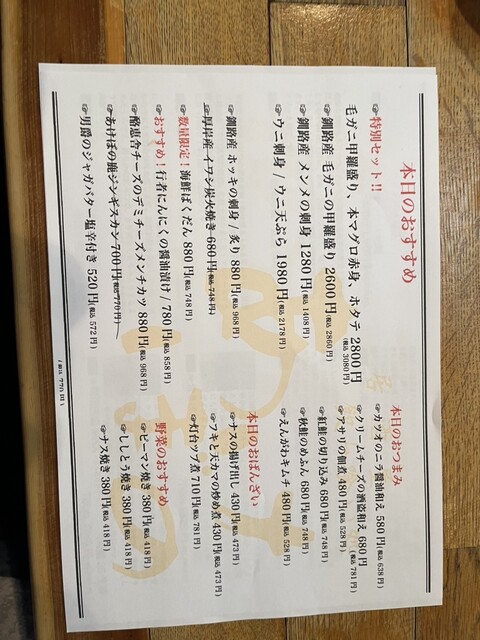 本日のおすすめ
☞特別セット!!
毛ガニ甲羅盛り、本マグロ赤身、ホタテ 2800円(税込 3080円)
☞釧路産 毛ガニの甲羅盛り 2600円(税込 2860円)
☞釧路産 メンメの刺身 1280円(税込 1408円)
☞ウニ刺身 / ウニ天ぷら 1980円(税込 2178円)
☞釧路産 ホッキの刺身 / 炙り 880円(税込 968円)
☞厚岸産 イワシ炭火焼き 680円(税込 748円)
☞数量限定!海鮮ばくだん 880円(税込 748円)
おすすめ!行者にんにくの醤油漬け / 780円(税込 858円)
☞酪恵舎チーズのデミチーズメンチカツ 880円(税込 968円)
☞あけぼの鹿ジンギスカン 700円(税込 770円)
☞男爵のジャガバター塩辛付き 520円(税込 572円)
本日のおつまみ
☞カツオのニラ醤油和え 580円(税込 638円)
☞クリームチーズの酒盗和え 680円(税込 781円)
☞アサリの佃煮 480円(税込 528円)
☞紅鮭の切り込み 680円(税込 748円)
☞秋鮭のめふん 680円(税込 748円)
☞えんがわキムチ 480円(税込 528円)
本日のおばんざい
☞ナスの揚げ出し 430円(税込 473円)
☞フキと天カマの炒め煮 430円(税込 473円)
☞灯台ツブ煮 710円(税込 781円)
野菜のおすすめ
☞ピーマン焼き 380円(税込 418円)
☞ししとう焼き 380円(税込 418円)
☞ナス焼き 380円(税込 418円)
(税込 770円)